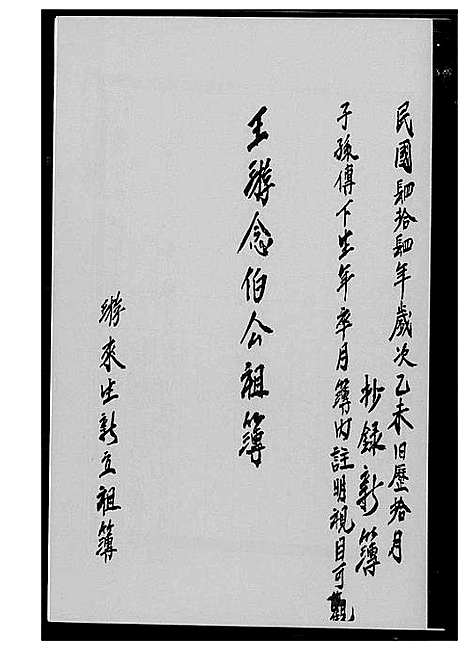 民國肆拾肆年歲次乙未旧歷拾月
抄錄新簿
子孫傅下生年卒月簿内註明視目可觀
王游念伯公祖簿
游來生新立祖簿